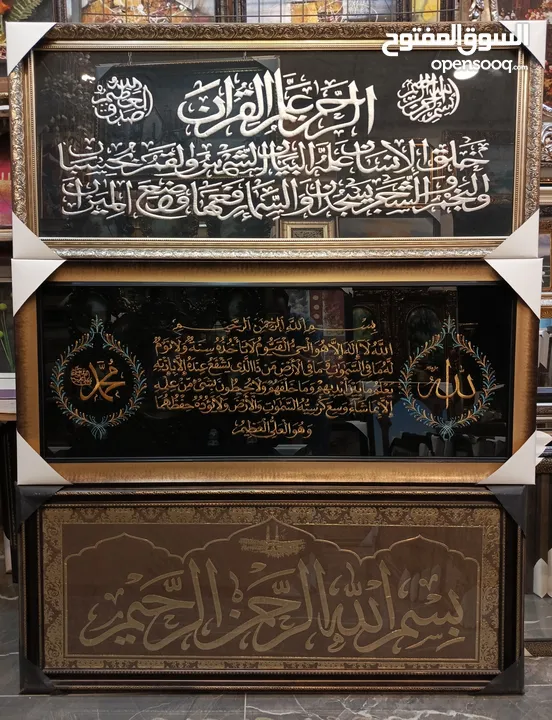 السوق المفتوح
opensooq.com
بسم الله الرحمن الرحيم
الرحمن علم القرآن
صدق الله العظيم
خلق الإنسان علمه البيان الشمس والقمر بحسبان
والنجم والشجر يسجدان والسماء رفعها ووضع الميزان
بسم الله الرحمن الرحيم
الله لا إله إلا هو الحي القيوم لا تأخذه سنة ولا نوم
له ما في السموات وما في الأرض من ذا الذي يشفع عنده إلا بإذنه
يعلم ما بين أيديهم وما خلفهم ولا يحيطون بشيء من علمه
إلا بما شاء وسع كرسيه السموات والأرض ولا يؤده حفظهما
وهو العلي العظيم
الله
محمد
بسم الله الرحمن الرحيم